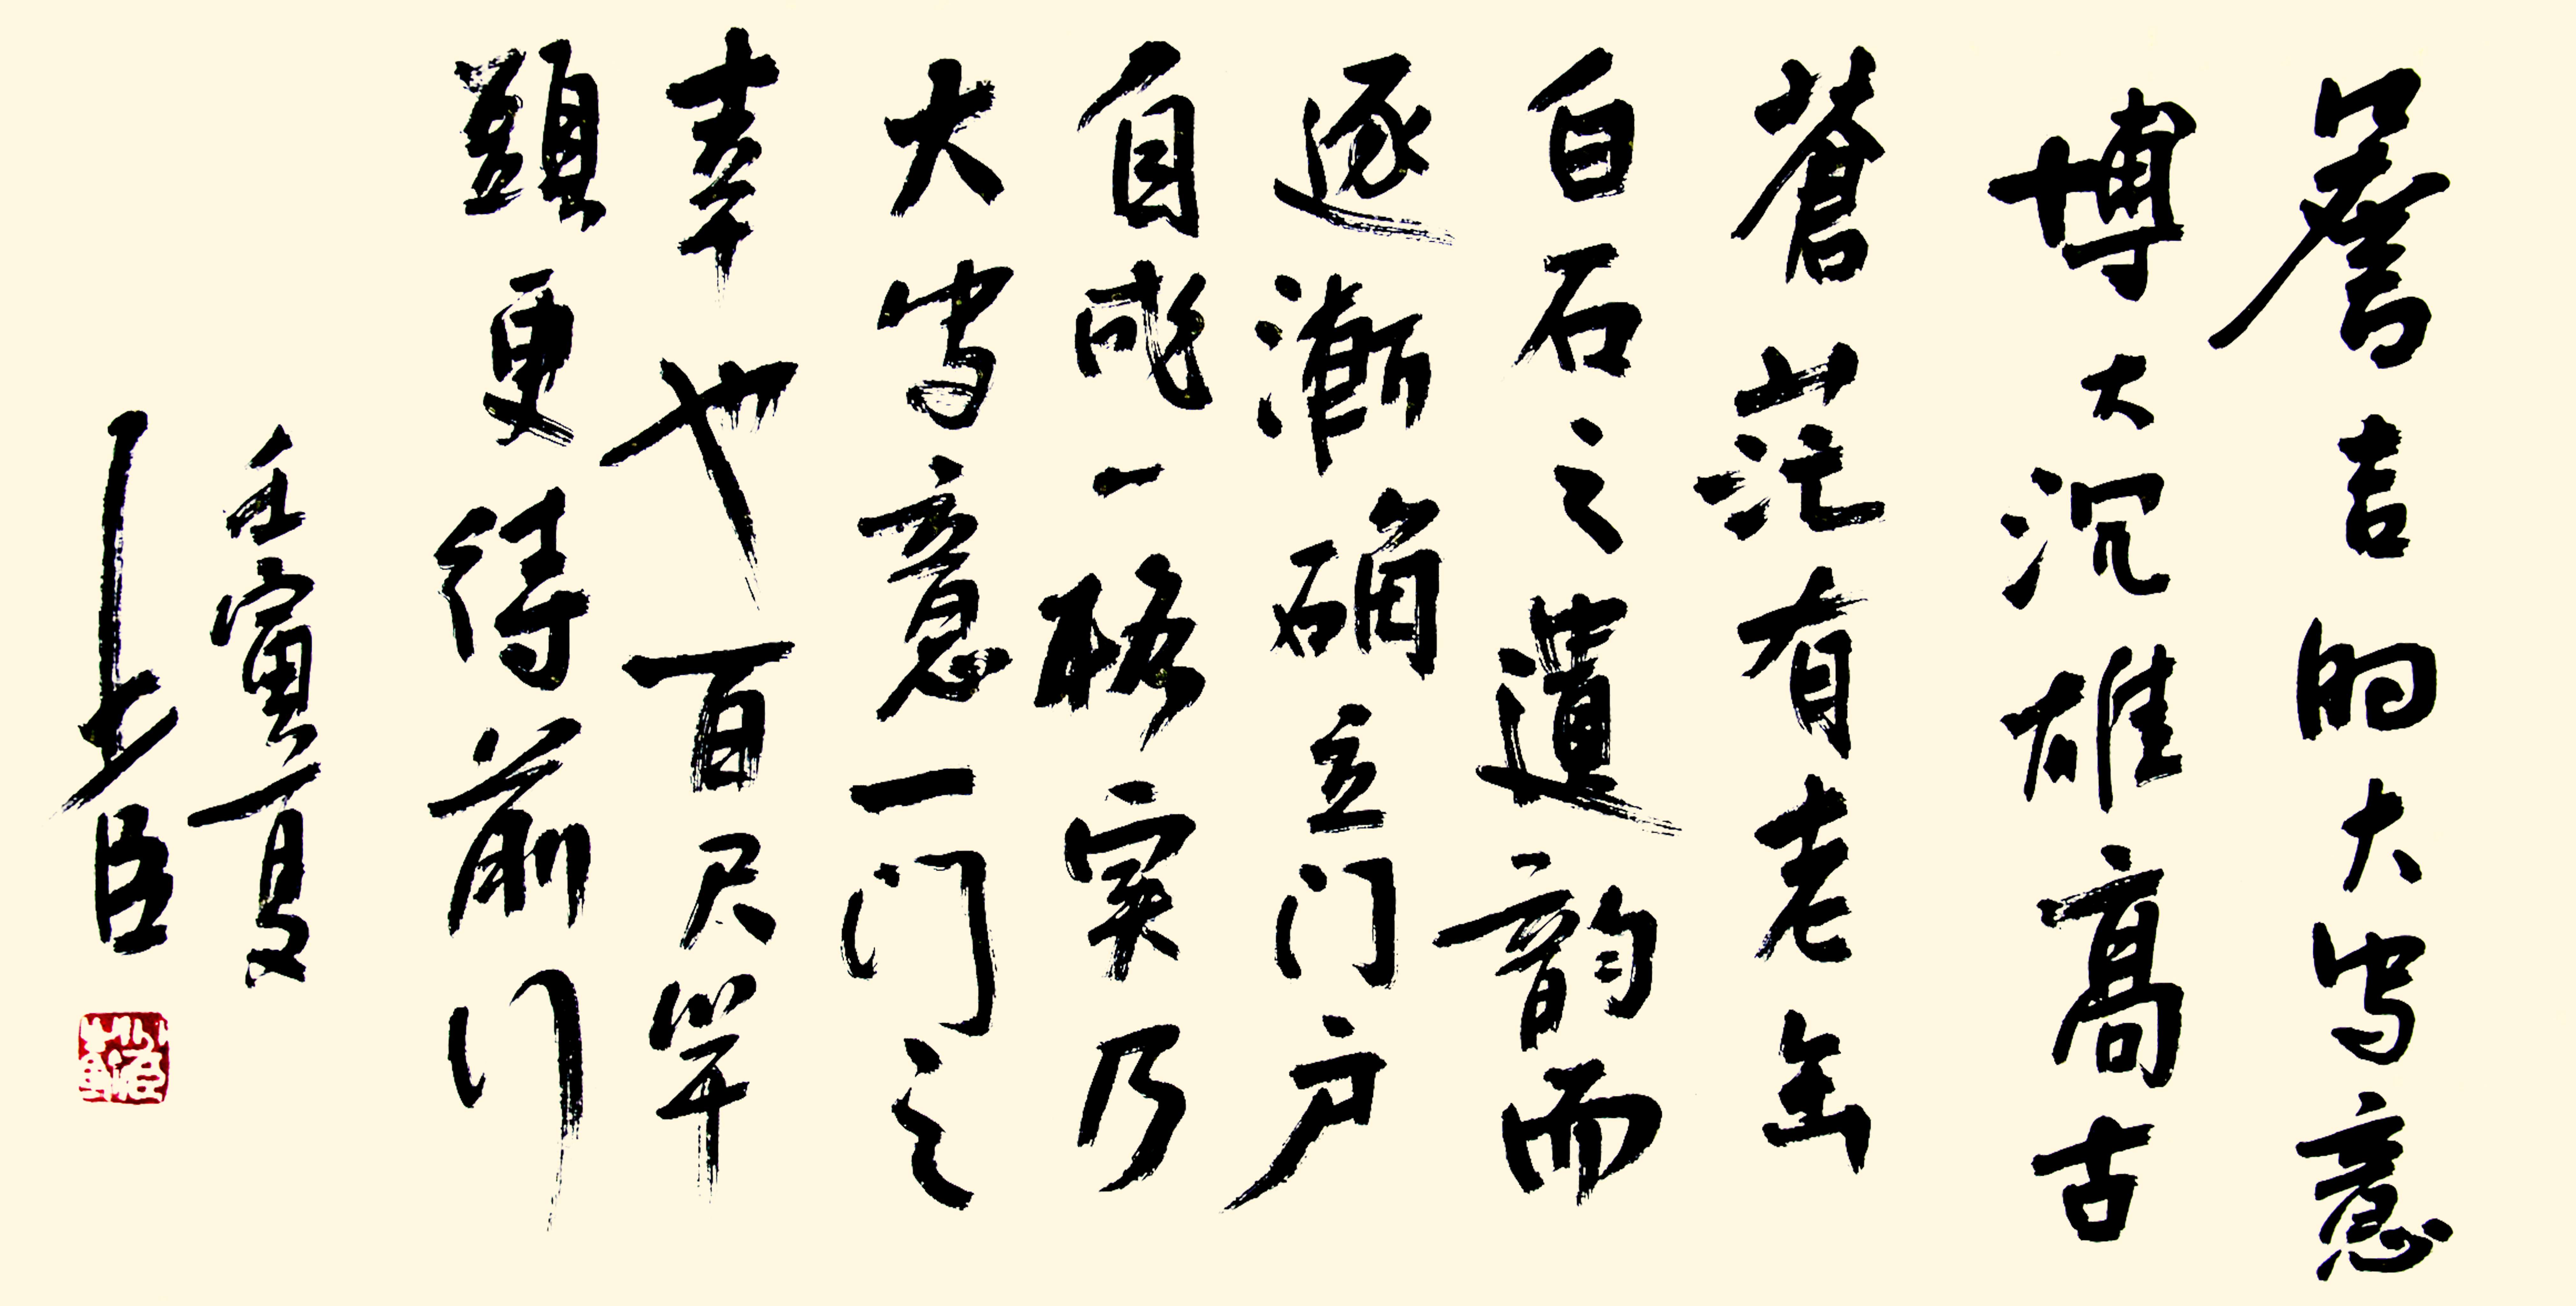 詹吉的大写意
博大沉雄高古
蒼茫有老缶
白石之遺韵而
逐漸确立门户
自成一格实乃
大写意一门之
幸也百尺竿
頭更待前行
壬寅夏
臣